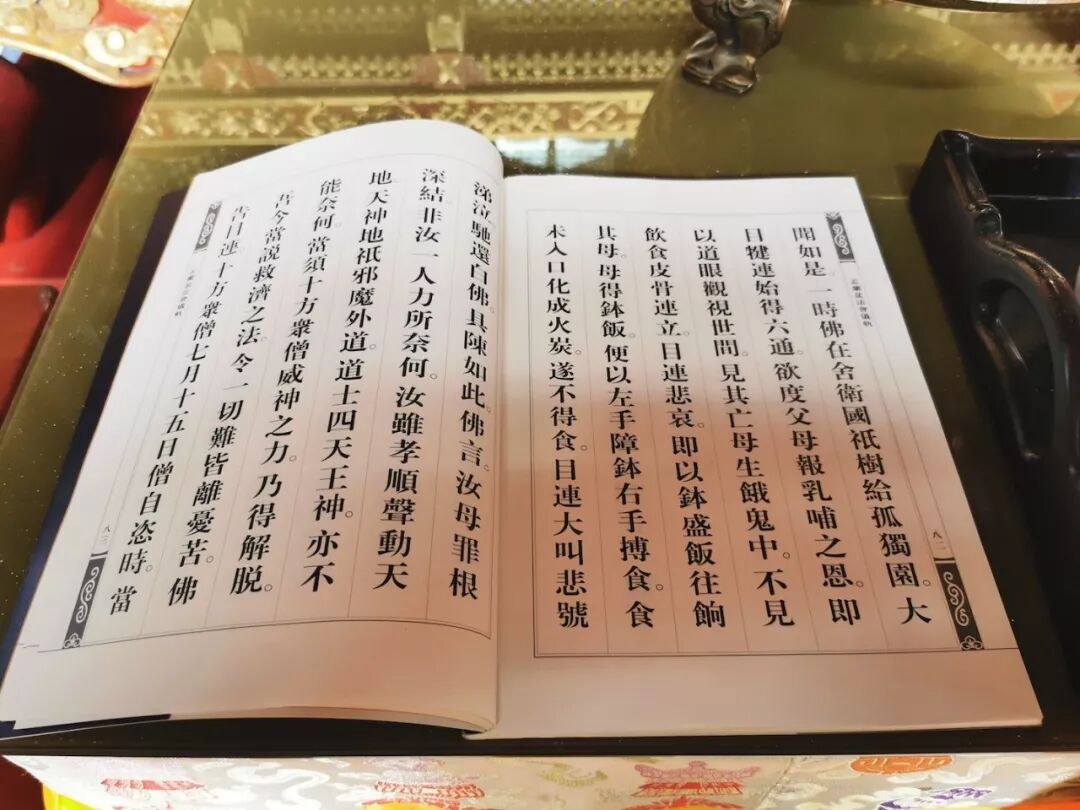 盂蘭盆法會儀軌
八二
聞如是。一時佛在舍衛國祇樹給孤獨園。大
目犍連始得六通。欲度父母報乳哺之恩。即
以道眼觀視世間。見其亡母生餓鬼中。不見
飲食皮骨連立。目連悲哀。即以鉢盛飯往餉
其母。母得鉢飯。便以左手障鉢右手搏食。食
未入口化成火炭。遂不得食。目連大叫悲號
涕泣馳還白佛。具陳如此。佛言。汝母罪根
深結。非汝一人力所奈何。汝雖孝順聲動天
地天神地祇邪魔外道。道士四天王神。亦不
能奈何。當須十方眾僧威神之力。乃得解脫。
吾今當說救濟之法。令一切難皆離憂苦。佛
告目連十方眾僧七月十五日僧自恣時。當
八三